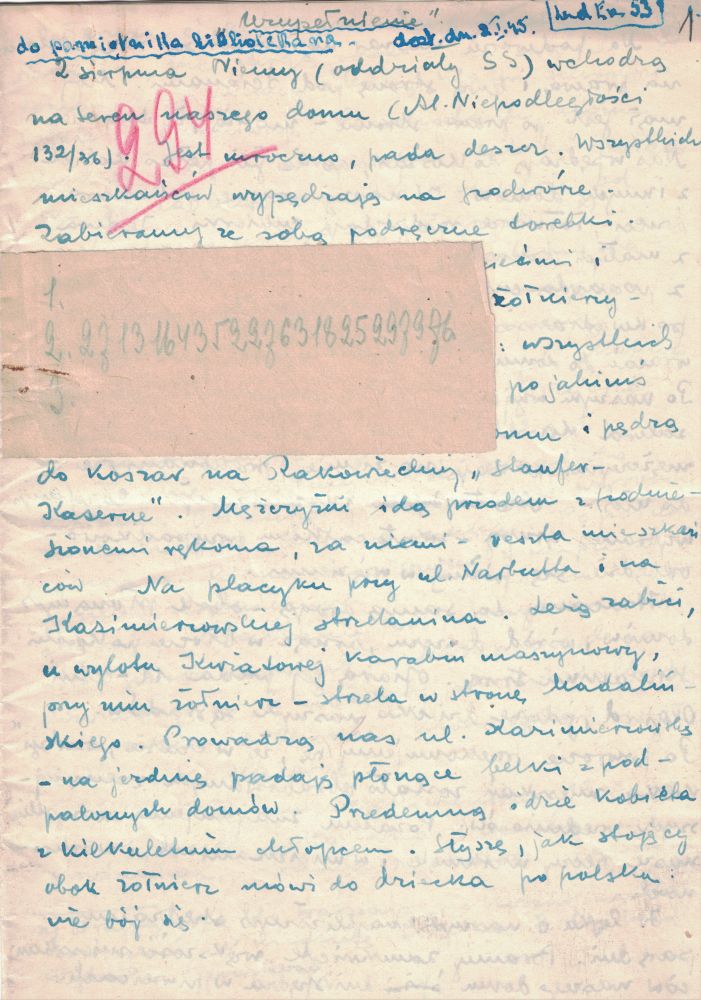 "Uzupełnienie"
do pamiętnika bibliotekarza.
1
294
2 sierpnia Niemcy (oddziały SS) wchodzą
na teren naszego domu (Al. Niepodległości
132/36). Jest mroczno, pada deszcz. Wszystkich
mieszkańców wypędzają na podwórze.
Zabieramy ze sobą podręczne torebki.
i
żołnierzy-
: wszystkich
po jakimś
1.
2. 27 13 16 43 5 22 7 63 18 25 29 79 76
3.
i pędzą
do koszar na Rakowieckiej "Staufer-
Kaserne". Mężczyźni idą przodem z podnie-
sionemi rękoma, za niemi - reszta mieszkań
ców. Na placyku przy ul. Narbutta i na
Kazimierzowskiej strzelanina. Leżą zabici,
u wylotu Kwiatowej karabin maszynowy,
przy nim żołnierz - strzela w stronę Madaliń-
skiego. Prowadzą nas ul. Kazimierzowską
- na jezdnię padają płonące belki z pod-
palonych domów. Przedemną idzie kobieta
z kilkuletnim chłopcem. Słyszę, jak stojący
obok żołnierz mówi do dziecka po polsku:
nie bój się.